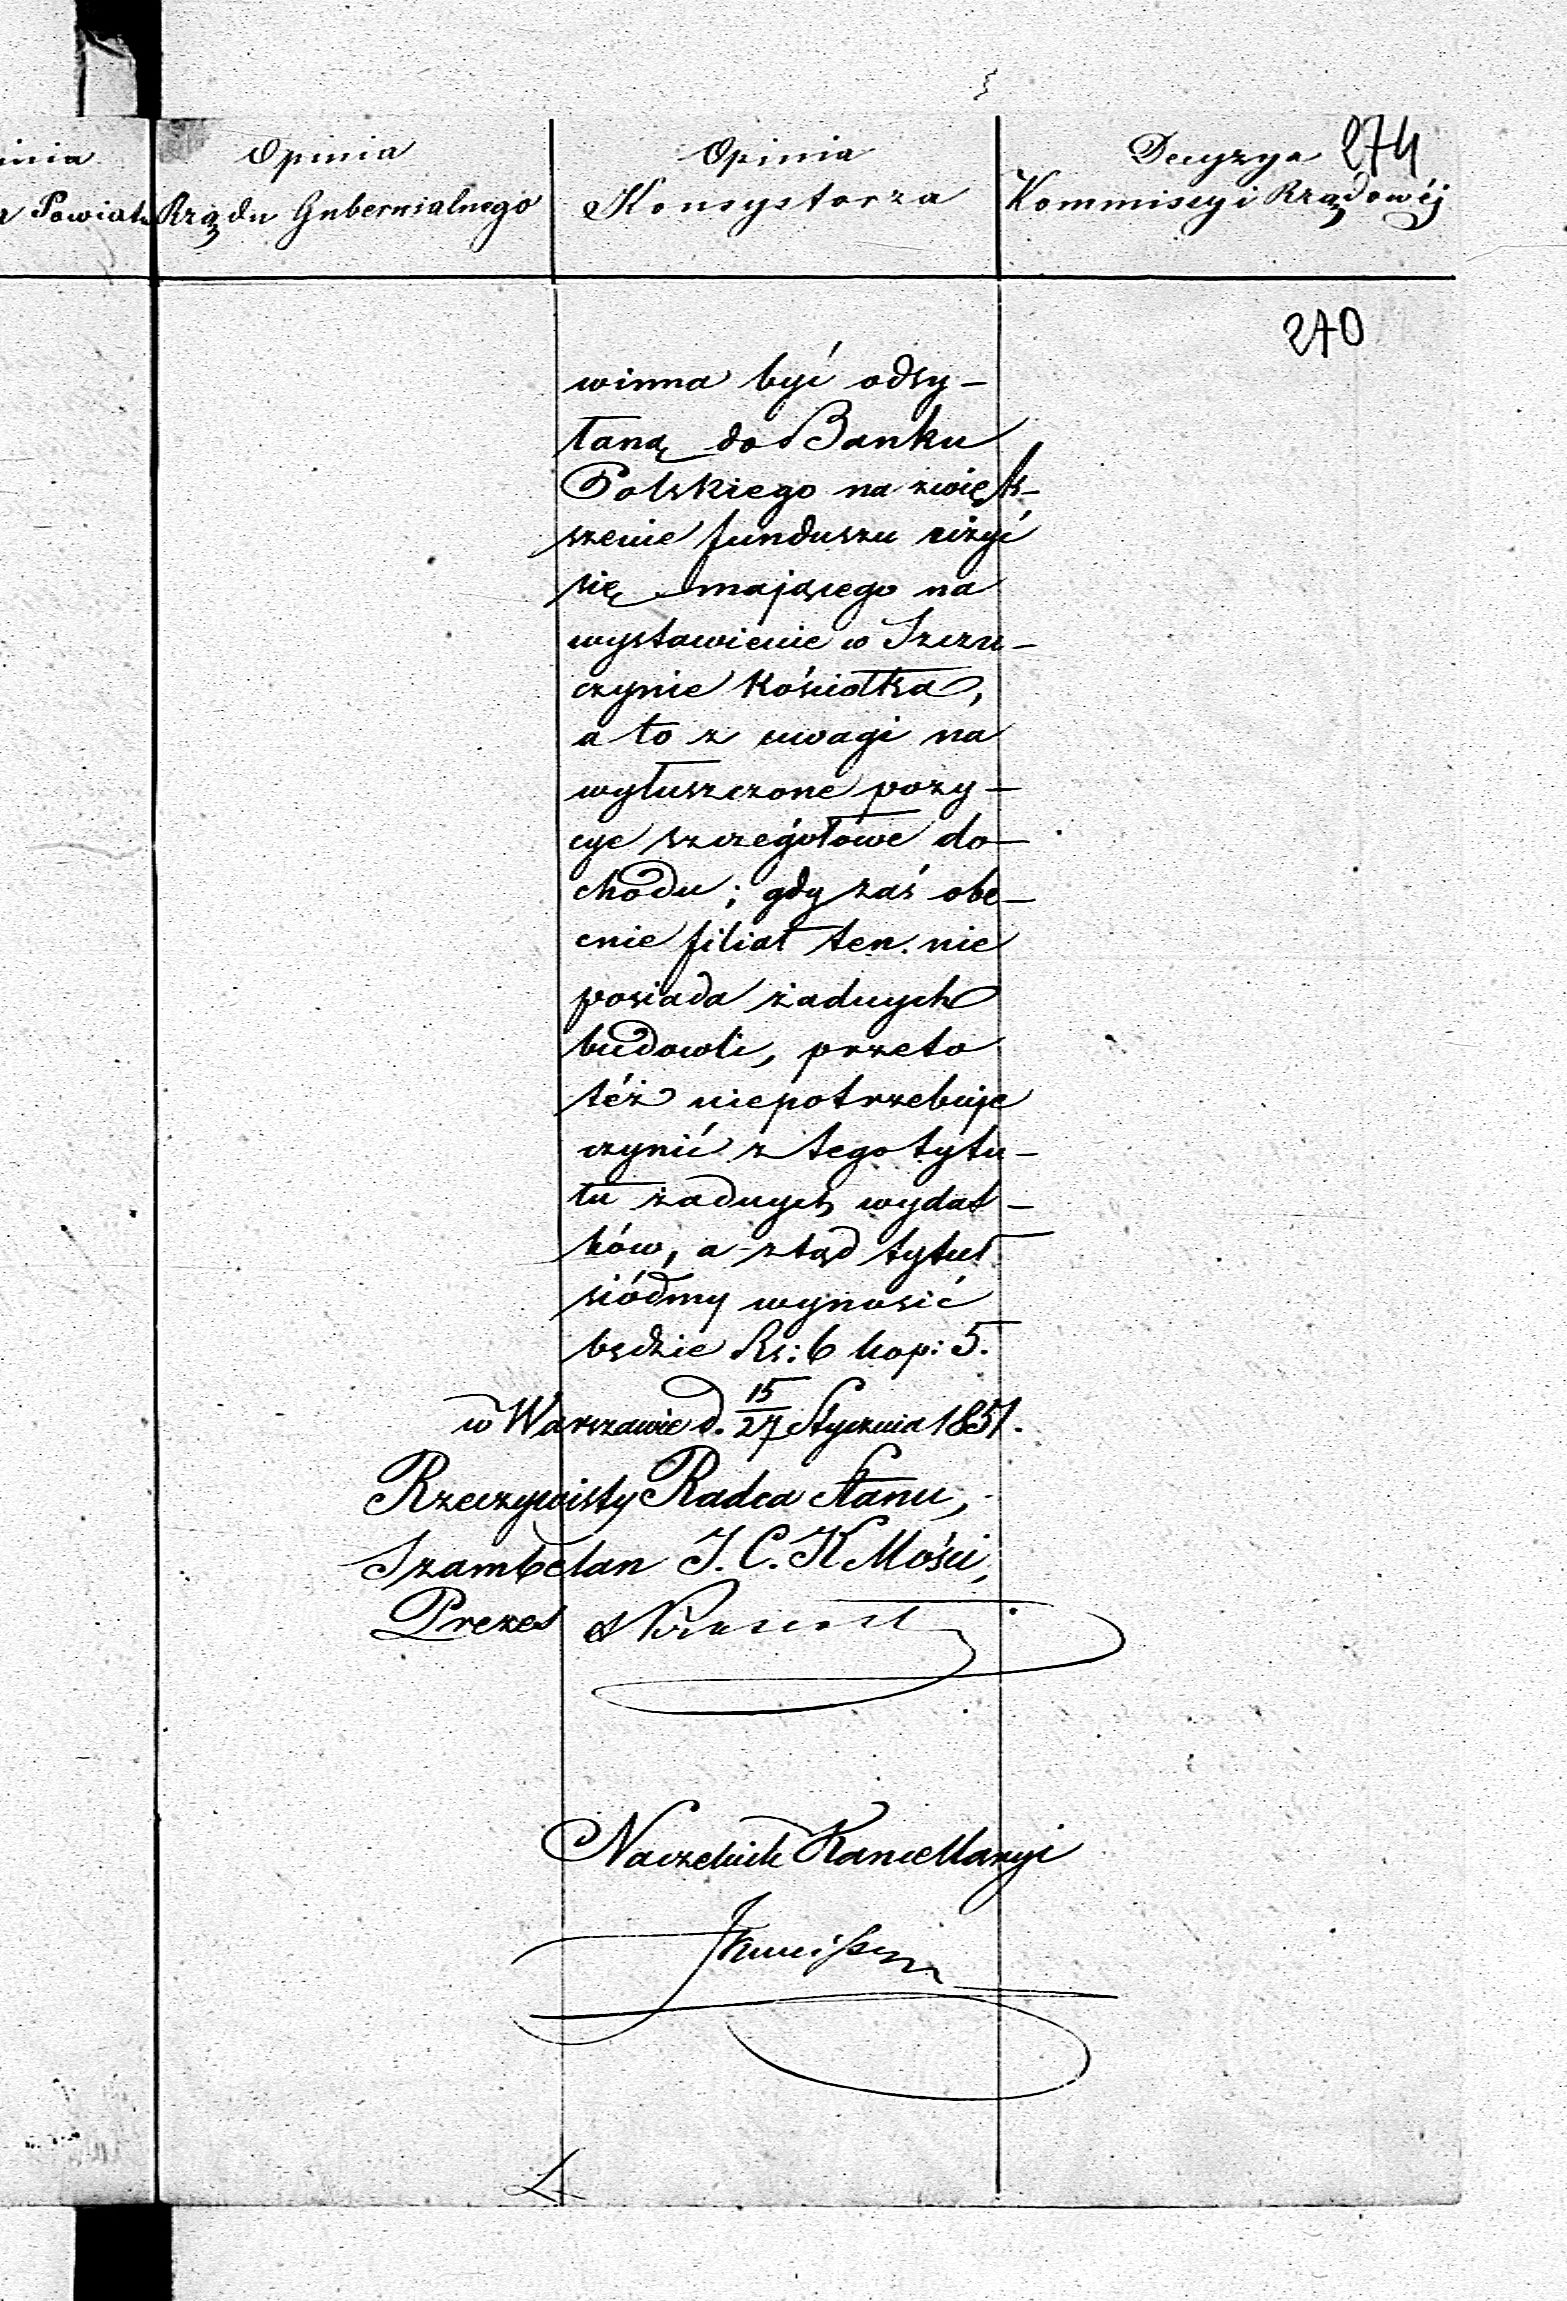 274
inia
Powiatu
Opinia
Rządu Gubernialnego
Opinia
Konsystorza
Decyzya
Kommissyi Rządowéj
270
winna być odsy-
łaną do Banku
Polskiego na zwięk-
szenie funduszu użyć
się mającego na
wystawienie w Szczu-
czynie kościołka,
a to z uwagi na
wyłuszczone pozy-
cye szczegółowe do-
chodu; gdy zaś obe-
cnie filiał ten nie
posiada żadnych
budowli, przeto
téż niepotrzebuje
czynić z tego tytu-
łu żadnych wydat-
ków, a ztąd tytuł
siódmy wynosić
będzie Rs: 6 kop: 5.
w Warszawie d. 15/27 Stycznia 1851.
Rzeczywisty Radca Stanu,
Szambelan J. C. K Mości,
Prezes
Naczelnik Kancellaryi